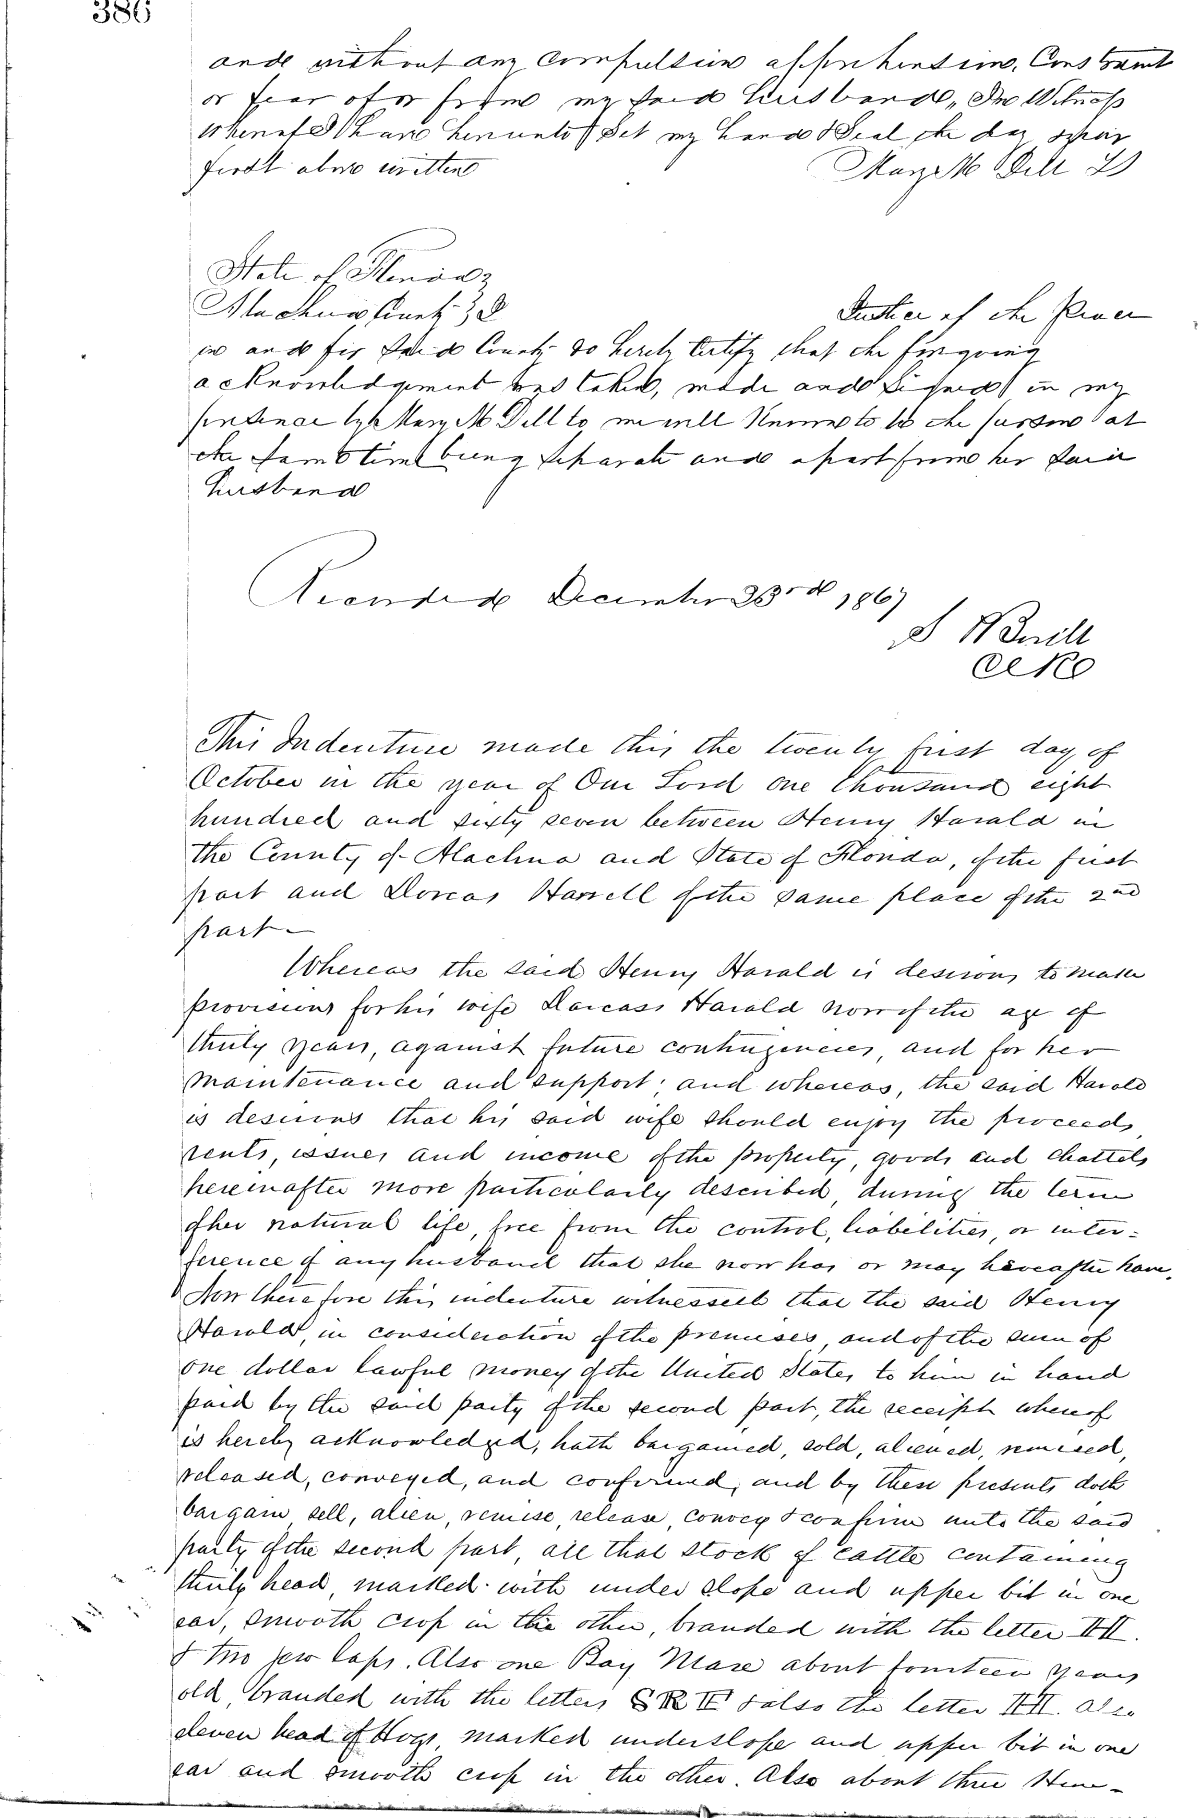 386
and without any compulsion apprehension, Constraint
or fear of or from my said Husband, In Witness
whereof I have hereunto Set my hand & Seal the day & year
first above written Mary M Dell LS
State of Florida
Alachua County Justice of the Peace
in and for Said County do hereby Certify that the foregoing
acknowledgement was taken, made and Signed in my
presence by Mary M Dell to me well Known to be the person at
the same time being Separate and apart from her said
husband
Recorded December 23rd 1867
Clk
This Indenture made this the twenty first day of
October in the year of Our Lord one thousand eight
hundred and sixty seven between Henry Harald in
the County of Alachua and State of Florida, of the first
part and Dorcas Harrell of the same place of the 2nd
part
Whereas the said Henry Harald is desirous to make
provisions for his wife Darcass Harald now of the age of
thirty years, against future contingencies, and for her
maintenance and support; and whereas, the said Harald
is desirous that his said wife should enjoy the proceeds,
rents, issues and income of the property, goods and chattels
hereinafter more particularly described, during the term
of her natural life, free from the control, liabilities, or inter=
ference of any husband that she now has or may hereafter have.
Now therefore this indenture witnesseth that the said Henry
Harald, in consideration of the premises, and of the sum of
one dollar lawful money of the United States to him in hand
paid by the said party of the second part, the receipt whereof
is hereby acknowledged, hath bargained, sold, aliened, remised,
released, conveyed, and confirmed, and by these presents doth
bargain, sell, alien, remise, release, convey & confirm unto the said
party of the second part, all that stock of cattle containing
thirty head, marked with under slope and upper bit in one
ear, smooth crop in the other, branded with the letter HH.
& two Also one Bay Mare about fourteen years
old, branded with the letters & also the letter HH. Also
eleven head of Hogs, marked underslope and upper bit in one
ear and smooth crop in the other. Also about three Hun-